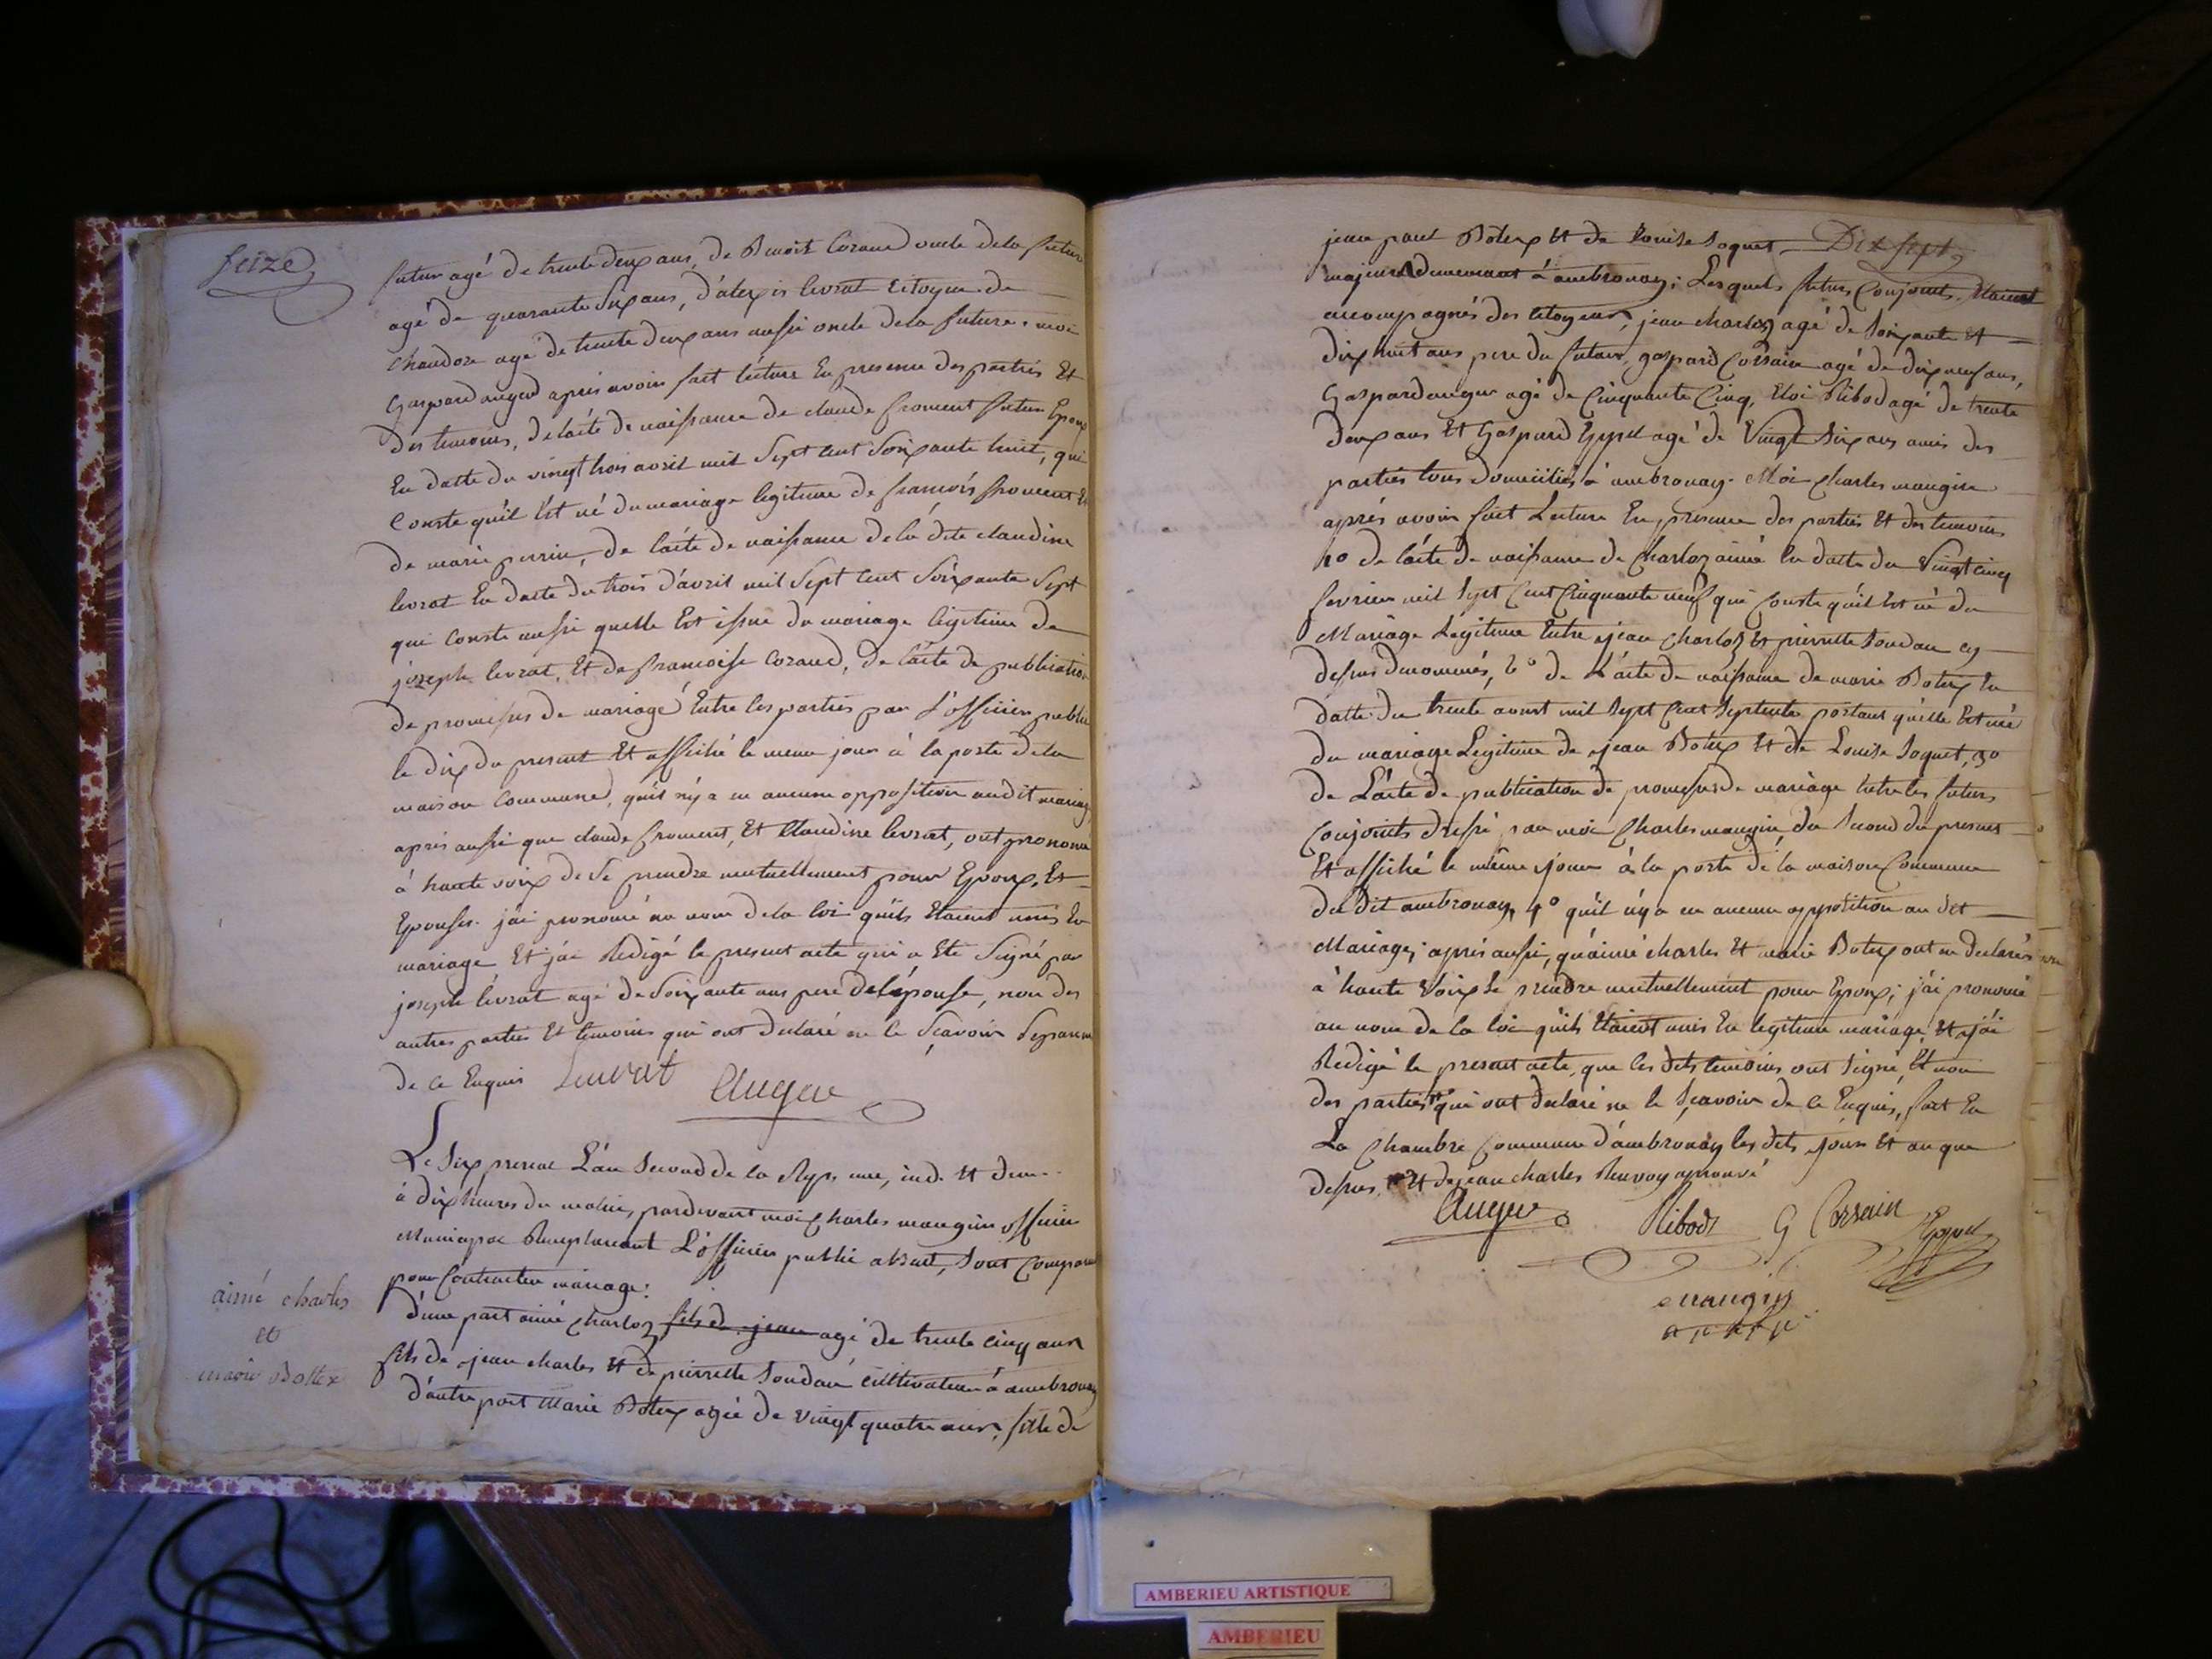 seize
futur agé de trente deux ans, de Benoit Corand oncle dela future
agé de quarante six ans, d'alexis levrat citoyen de
Chaudore agé de trente deux ans aussi oncle dela future. moi
Gaspard auger après avoir fait lecture En presence des parties Et
des temoins, de l'acte de naissance de claude froment futur Epoux
En datte du vingt trois avril mil Sept cent Soixante huit, qui
Conste qu'il Est né du mariage legitime de francois froment Et
de marie perrin, de l'acte de naissance de la dite claudine
levrat En datte du trois d'avril mil Sept cent Soixante Sept
qui Conste aussi quelle Est issue du mariage legitime de
joseph levrat, Et de francoise Corand, de l'acte de publication
de promesses de mariage Entre les parties par L'officier public
le dix du present Et affiché le meme jour à la porte dela
maison Commune, qu'il n'y a eu aucune opposition audit mariage
après aussi que claude froment, Et Claudine levrat, ont prononcé
à haute voix de se prendre mutuellement pour Epoux, Et
Epouse. j'ai prononcé au nom dela loi qu'ils Etaient unis En
mariage Et j'ai Redigé le present acte qui a Eté Signé par
joseph levrat agé de Soixante ans pere de lépouse, non des
autres parties Et temoins qui ont declaré ne le Sçavoir
de ce Enquis Leuvrat Auger
Le Six L'an Second de la Rep. une, ind. Et
à dix heures du matin, pardevant moi Charles maugin officier
Municipal Remplaceant L'officier public absent, Sont Comparu
pour Contracter mariage:
aimé charles
et
marie Bottex
d'une part aimé Charloz fils de jean agé de trente cinq ans
fils de jean charles Et de pierrette Soudan cultivateur à ambronay
d'autre part Marie Botex agée de vingt quatre ans, fille de
Dix sept
jean paul Botex Et de Louise Joquet
majeurs demeurant à ambronay; Lesquels futurs Conjoints. Etaient
accompagnés des citoyens, jean charloz agé de Soixante Et
dix huit ans pere du futur, gaspard Corsain agé de dix neuf ans,
Gaspard auger agé de Cinquante Cinq, Eloi Ribod agé de trente
deux ans Et Gaspard Eppel agé de Vingt Six ans amis des
parties tous domiciliés à ambronay. Moi Charles maugin
après avoir fait Lecture En presence des parties Et des temoins
1º de l'acte de naissance de Charloz aimé En datte du Vingt cinq
fevrier mil Sept Cent Cinquante neuf qui Conste qu'il Est né du
Mariage Légitime Entre jean Charloz Et pierrette Soudan cy
dessus denommés, 2º de L'acte de naissance de marie Botex En
datte du trente aoust mil Sept Cent Septente portant qu'elle Est née
du mariage Legitime de jean Botex Et de Louise Joquet, 3º
de L'acte de publication de promesses de mariage Entre les futurs
Conjoints dressé par moi Charles maugin, du Second du present
Et affiché le même jour à la porte de la maison Commune
du dit ambronay, 4º qu'il n'y a eu aucune opposition au dit
Mariage; après aussi, qu'aimé charles Et marie Botex ont declarés
à haute Voix Se prendre mutuellement pour Epoux; j'ai prononcé
au nom de la loi qu'ils Etaient unis En legitime mariage, Et j'ai
Redigé le present acte, que les dits temoins ont Signé, Et non
des parties qui ont declaré ne le Sçavoir de ce Enquis, fait En
La Chambre Commune d'ambronay les dits jour Et an que
dessus. Et de jean charles Renvoy aprouvé
Auger Ribod G Corsain Eppel
maugin
AMBERIEU ARTISTIQUE
AMBERIEU